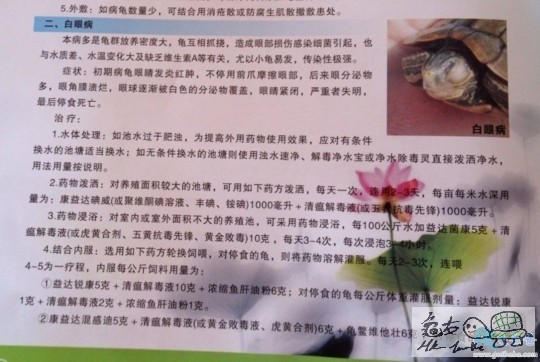 5.外敷：如病龟数量少，可结合用消疮散或防腐生肌散撒敷患处。
二、白眼病
本病多是龟群放养密度大，龟互相抓挠，造成眼部损伤感染细菌引起，也
与水质差、水温变化大及缺乏维生素A等有关，尤以小龟易发，传染性极强。
症状：初期病龟眼睛发炎红肿，不停用前爪摩擦眼部，后来眼分泌物
多，眼角膜溃烂，眼球逐渐被白色的分泌物覆盖，眼睛紧闭，严重者失明，
最后停食死亡。
白眼病
治疗：
1.水体处理：如池水过于肥浊，为提高外用药物使用效果，应对有条件
换水的池塘适当换水；如无条件换水的池塘则使用浊水速净、解毒净水宝或净水除毒灵直接泼洒净水，
用法用量按说明。
2.药物泼洒：对养殖面积较大的池塘，可用如下药方泼洒，每天一次，连用2-3天，每亩每米水深用
量为：康益达碘威(或聚维酮碘溶液、丰碘、铵碘)1000毫升+清瘟解毒液(或五黄抗毒先锋)1000毫升。
3.药物浸浴：对室内或室外面积不大的养殖池，可采用药物浸浴，每100公斤水加益达菌康5克+清
瘟解毒液(或虎黄合剂、五黄抗毒先锋、黄金败毒)10克，每天3-4次，每次浸泡3-4小时。
4.结合内服：选用如下药方轮换饲喂，对停食的龟，则将药物溶解灌服。每天2-3次，连喂
4-5为一疗程，内服每公斤饲料用量为：
①益达锐康5克+清瘟解毒液10克+浓缩鱼肝油粉6克；对停食的龟每公斤体重灌服剂量：益达锐康
1克+清瘟解毒液2克+浓缩鱼肝油粉1克。
②康益达混感迪5克+清瘟解毒液(或黄金败毒液、虎黄合剂)6克+龟鳖维他壮6克